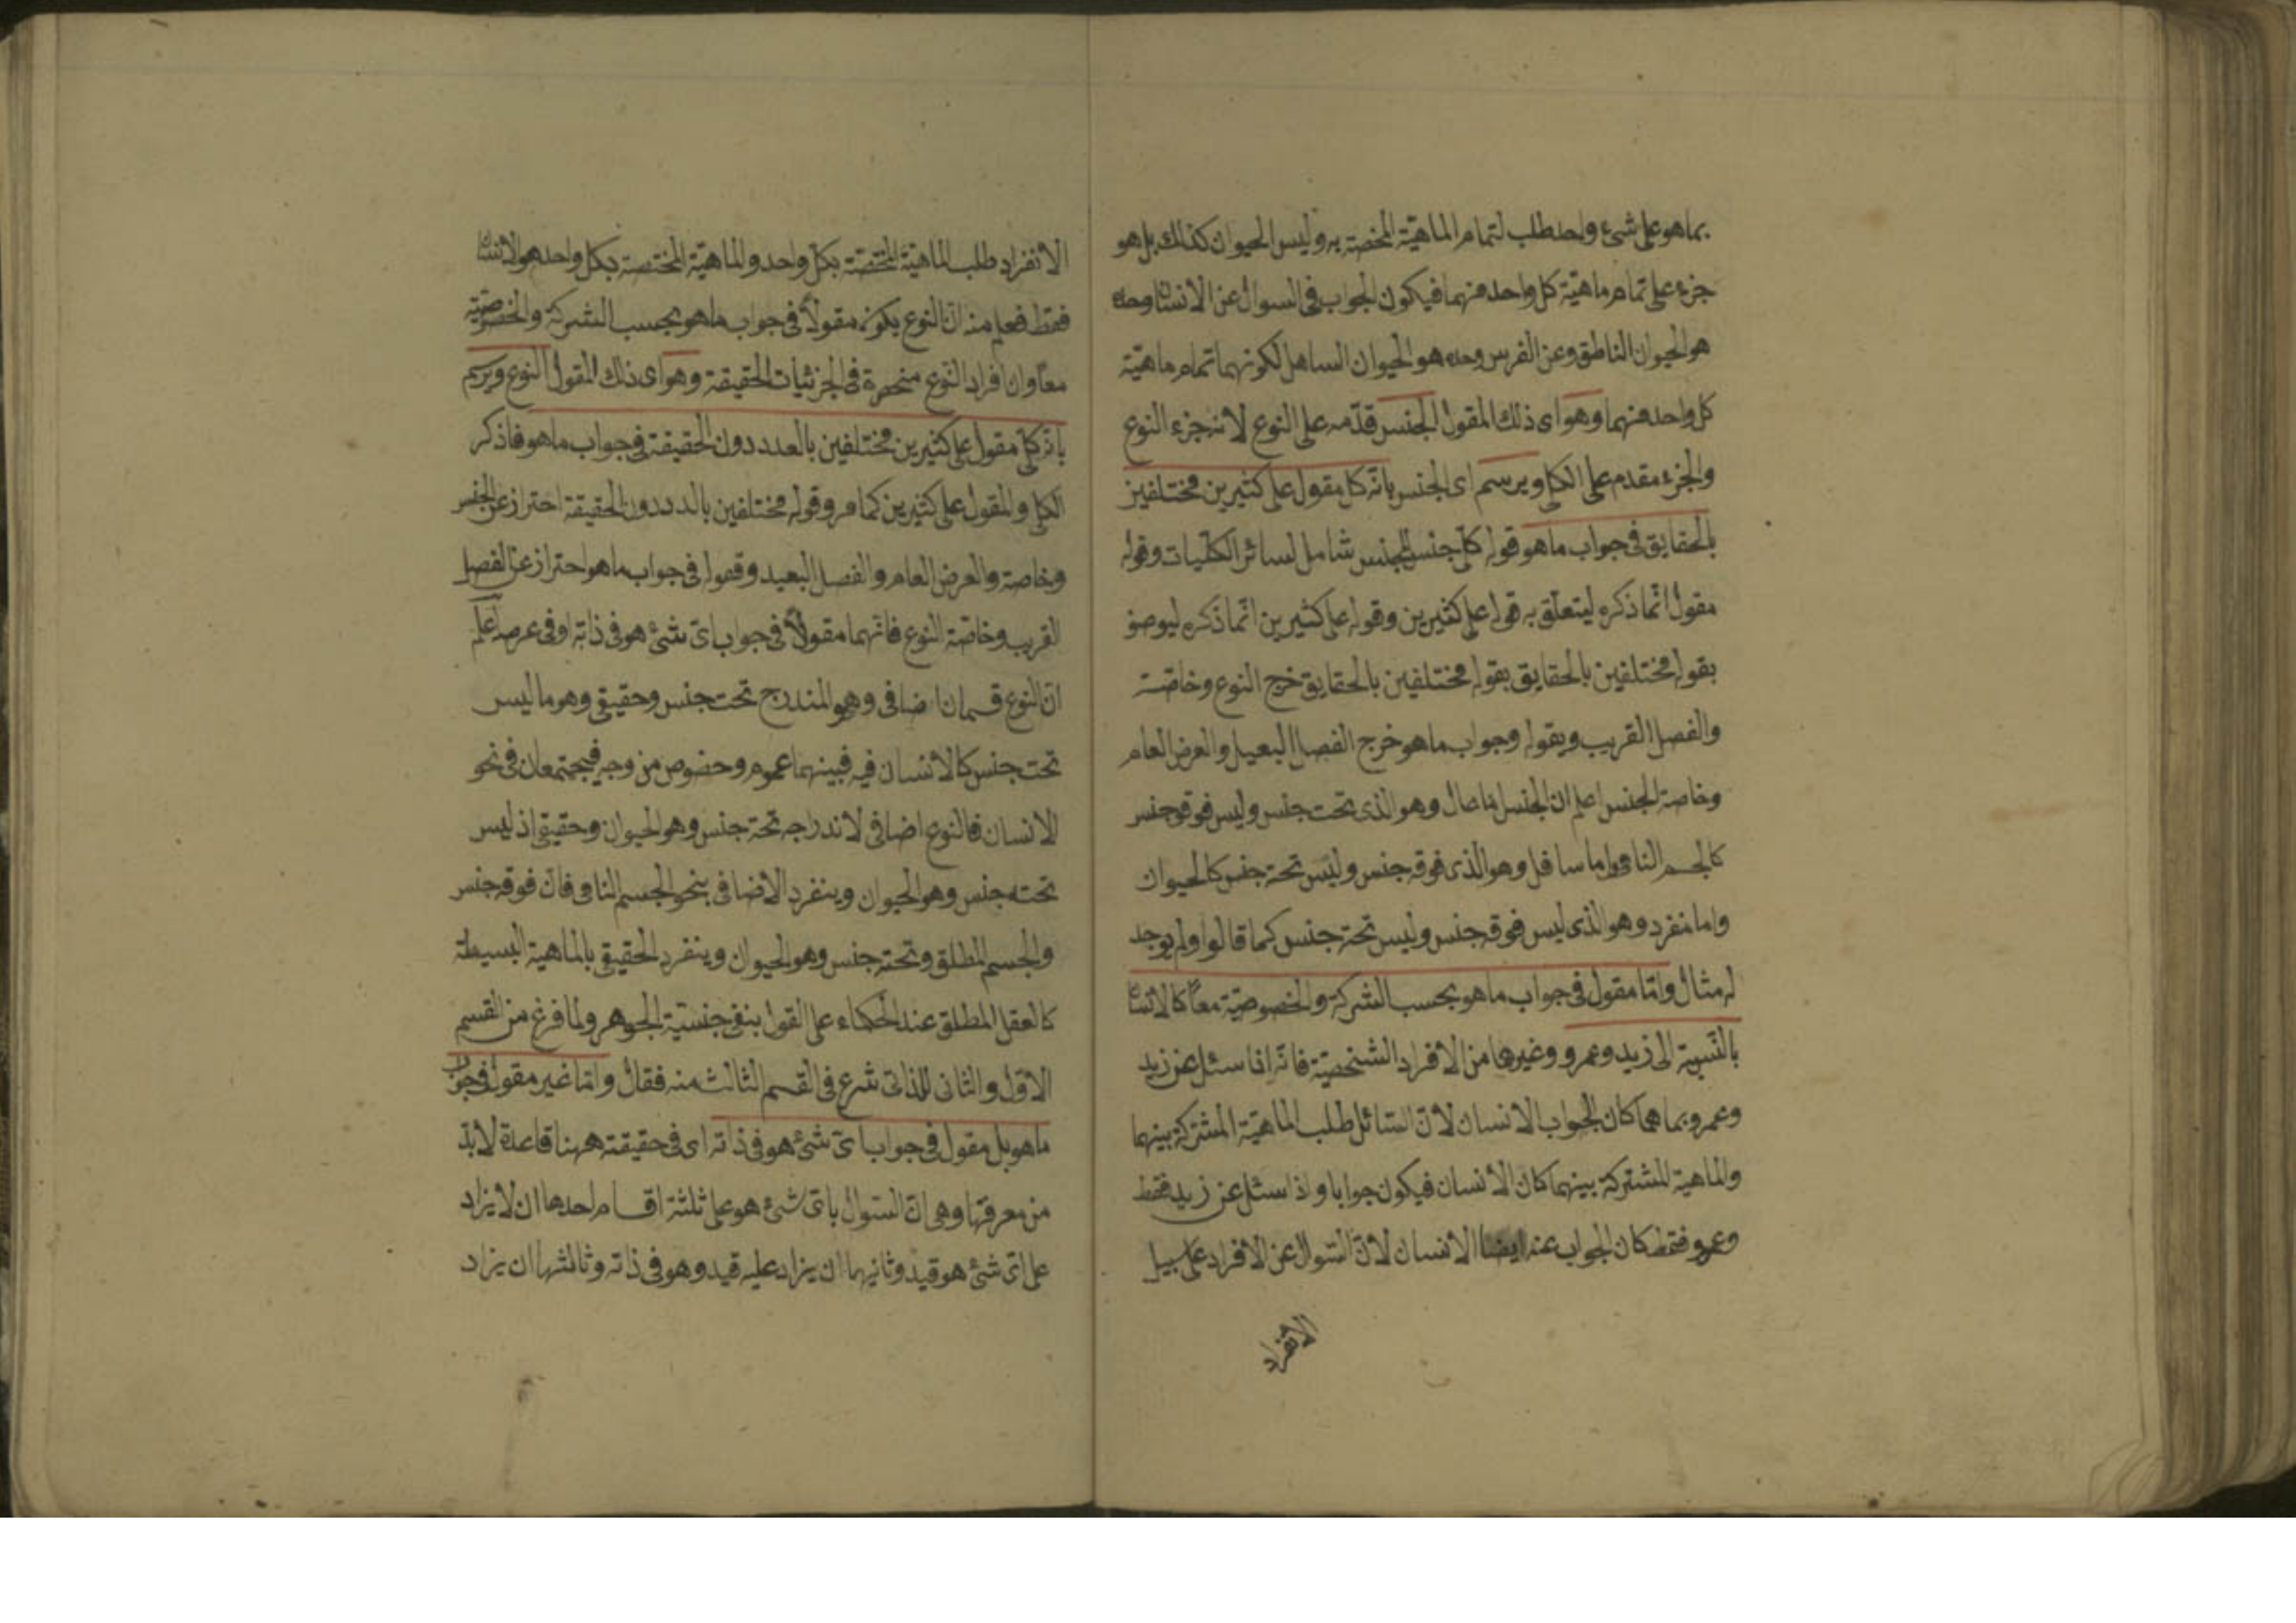 بما هو على شئ واحد طلب لتمام الماهيّة المختصة به وليس الحيوان كذلك بل هو
جزء على تمام ماهيّة كل واحد منهما فيكون الجواب فى السوال عن الانسان وحده
هو الحيوان الناطق وعن الفرس وحده هو الحيوان الساهل لكونهما تمام ماهيّة
كل واحد منهما وهو اى ذلك المقول الجنس قدّمه على النوع لانه جزء النوع
والجزء مقدم على الكل ويرسم اى الجنس بانّه كل مقول على كثيرين مختلفين
بالحقايق فى جواب ما هو قوله كلّ جنس للجنس شامل لسائر الكلّيات وقوله
مقول انّما ذكره ليتعلّق به قوله على كثيرين وقوله على كثيرين انّما ذكره ليوصف
بقوله مختلفين بالحقايق بقوله مختلفين بالحقايق خرج النوع وخاصّته
والفصل القريب وبقوله وجواب ما هو خرج الفصل البعيد والعرض العام
وخاصة الجنس اعلم ان الجنس اما عال وهو الذى تحت جنس وليس فوقه جنس
كالجسم النامى واما سافل وهو الذى فوقه جنس وليس تحته جنس كالحيوان
واما منفرد وهو الذى ليس فوقه جنس وليس تحته جنس كما قالوا ولم يوجد
له مثال وامّا مقول فى جواب ما هو بحسب الشركة والخصوصيّة معاً كالانسان
بالنّسبة الى زيد وعمرو وغيرها من الافراد الشخصيّة فانّه اذا سئل عن زيد
وعمرو بما هما كان الجواب الانسان لانّ السّائل طلب الماهيّة المشتركة بينهما
والماهية المشتركة بينهما كان الانسان فيكون جوابا واذا سئل عن زيد فقط
وعمرو فقط كان الجواب عنه ايضا الانسان لانّ السّوال عن الافراد على سبيل
الانفراد
الانفراد طلب الماهيّة المختصّة بكل واحد والماهيّة المختصة بكل واحد هو الانسان
فقط فعلم منه انّ النوع يكون مقولاً فى جواب ما هو بحسب الشركة والخصوصيّة
معاً وان افراد النّوع منحصرة فى الجزئيات الحقيقة وهو اى ذلك المقول النوع ويرسم
بانه كلّى مقول على كثيرين مختلفين بالعدد دون الحقيقة فى جواب ما هو فاذكر
الكلى والمقول على كثيرين كما مر وقوله مختلفين بالدد دون الحقيقة احتراز عن الجنس
وخاصة والعرض العام والفصل البعيد وقوله فى جواب ما هو احتراز عن الفصل
القريب وخاصّة النوع فانّهما مقولاً فى جواب اىّ شئ هو فى ذاته او فى عرضه اعلم
انّ النوع قسمان اضافى وهو المندرج تحت جنس وحقيقى وهو ما ليس
تحت جنس كالانسان فيه فبينهما عموم وخصوص من وجه فيجتمعان فى نحو
الانسان فالنوع اضافى لاندراجه تحته جنس وهو الحيوان وحقيقى اذ ليس
تحته جنس وهو الحيوان وينفرد الاضافى بنحو الجسم النامى فان فوقه جنس
والجسم المطلق وتحته جنس وهو الحيوان وينفرد الحقيقى بالماهية البسيطة
كالعقل المطلق عند الحكماء على القول بنفى جنسيّة الجوهر ولما فرغ من القسم
الاوّل والثانى للذاتى شرع فى القسم الثالث منه فقال وامّا غير مقول فى جواب
ما هو بل مقول فى جواب اىّ شئ هو فى ذاته اى فى حقيقته ههنا قاعدة لابدّ
من معرفتها وهى انّ السّوال باىّ شئ هو على ثلثة اقسام احدها ان لا يزاد
على اىّ شئ هو قيد وثانيهما ان يزاد عليه قيد وهو فى ذاته وثالثها ان يزاد